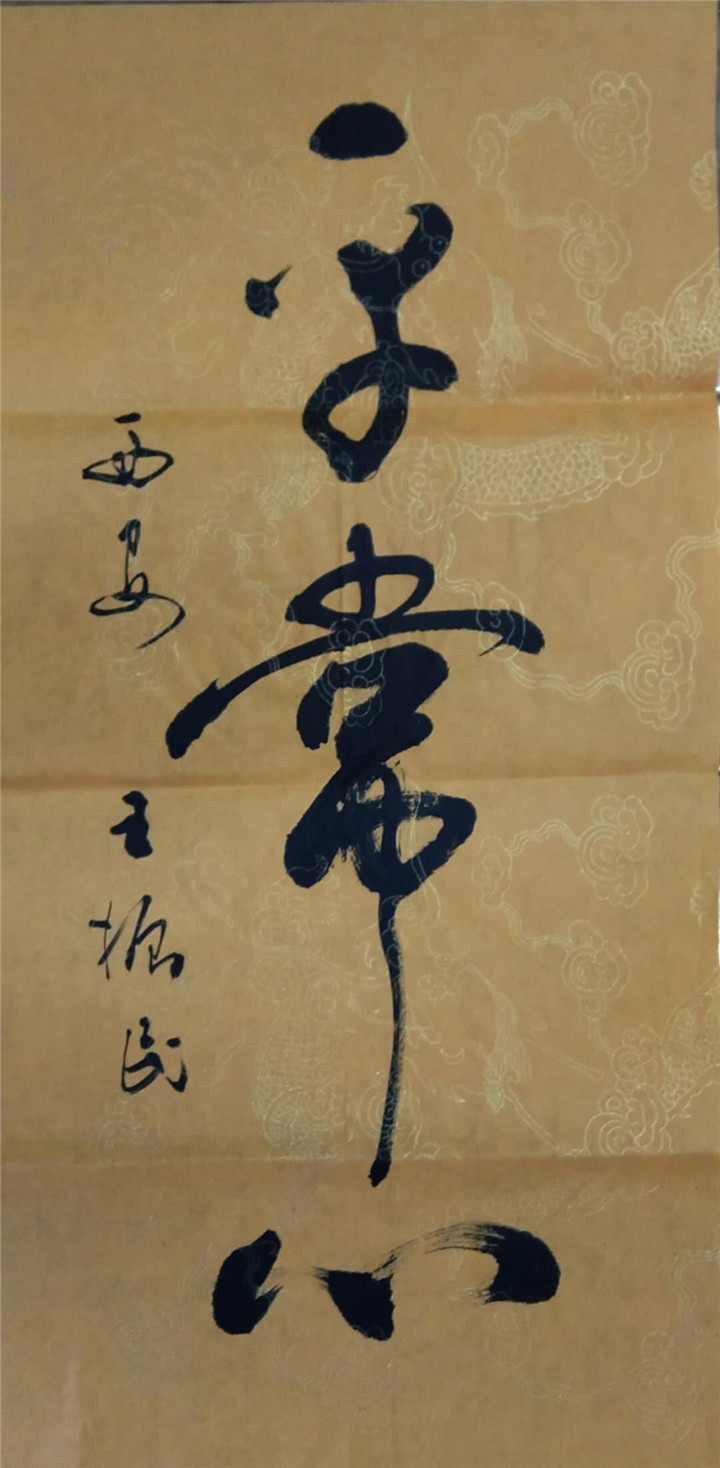 平常心
西安 王振民